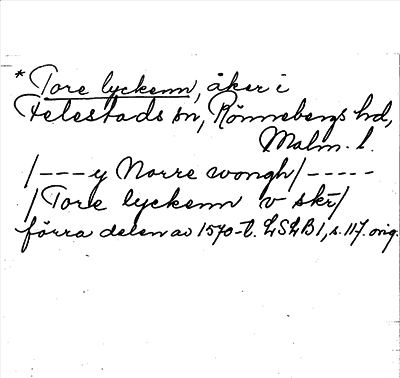 * Tore lyckenn, åker i
Felestads sn, Rönnebergs hd,
Malm. l.
/---y Norre wongh/-----
/Tore lyckenn v skr/
förra delen av 1570-t. LSLB 1, s. 117. orig.